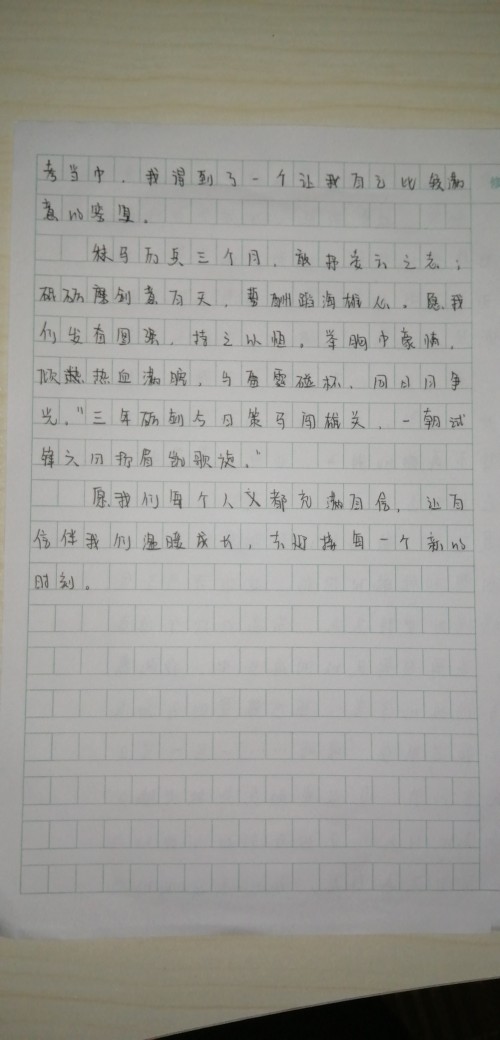 考当中，我得到了一个让我自己比较满
意的答复。
秣马历兵三个月，敢抒凌云之志；
砥砺磨剑意百天，誓酬蹈海雄心。愿我
们发奋图强，持之以恒。举胸中豪情，
倾热血满腔，与雷霆碰杯，同日月争
光。"三年砺剑今日策马闯雄关，一朝试
锋六月扬眉凯歌旋。"
愿我们每个人又都充满自信，让自
信伴我们温暖成长，去迎接每一个新的
时刻。